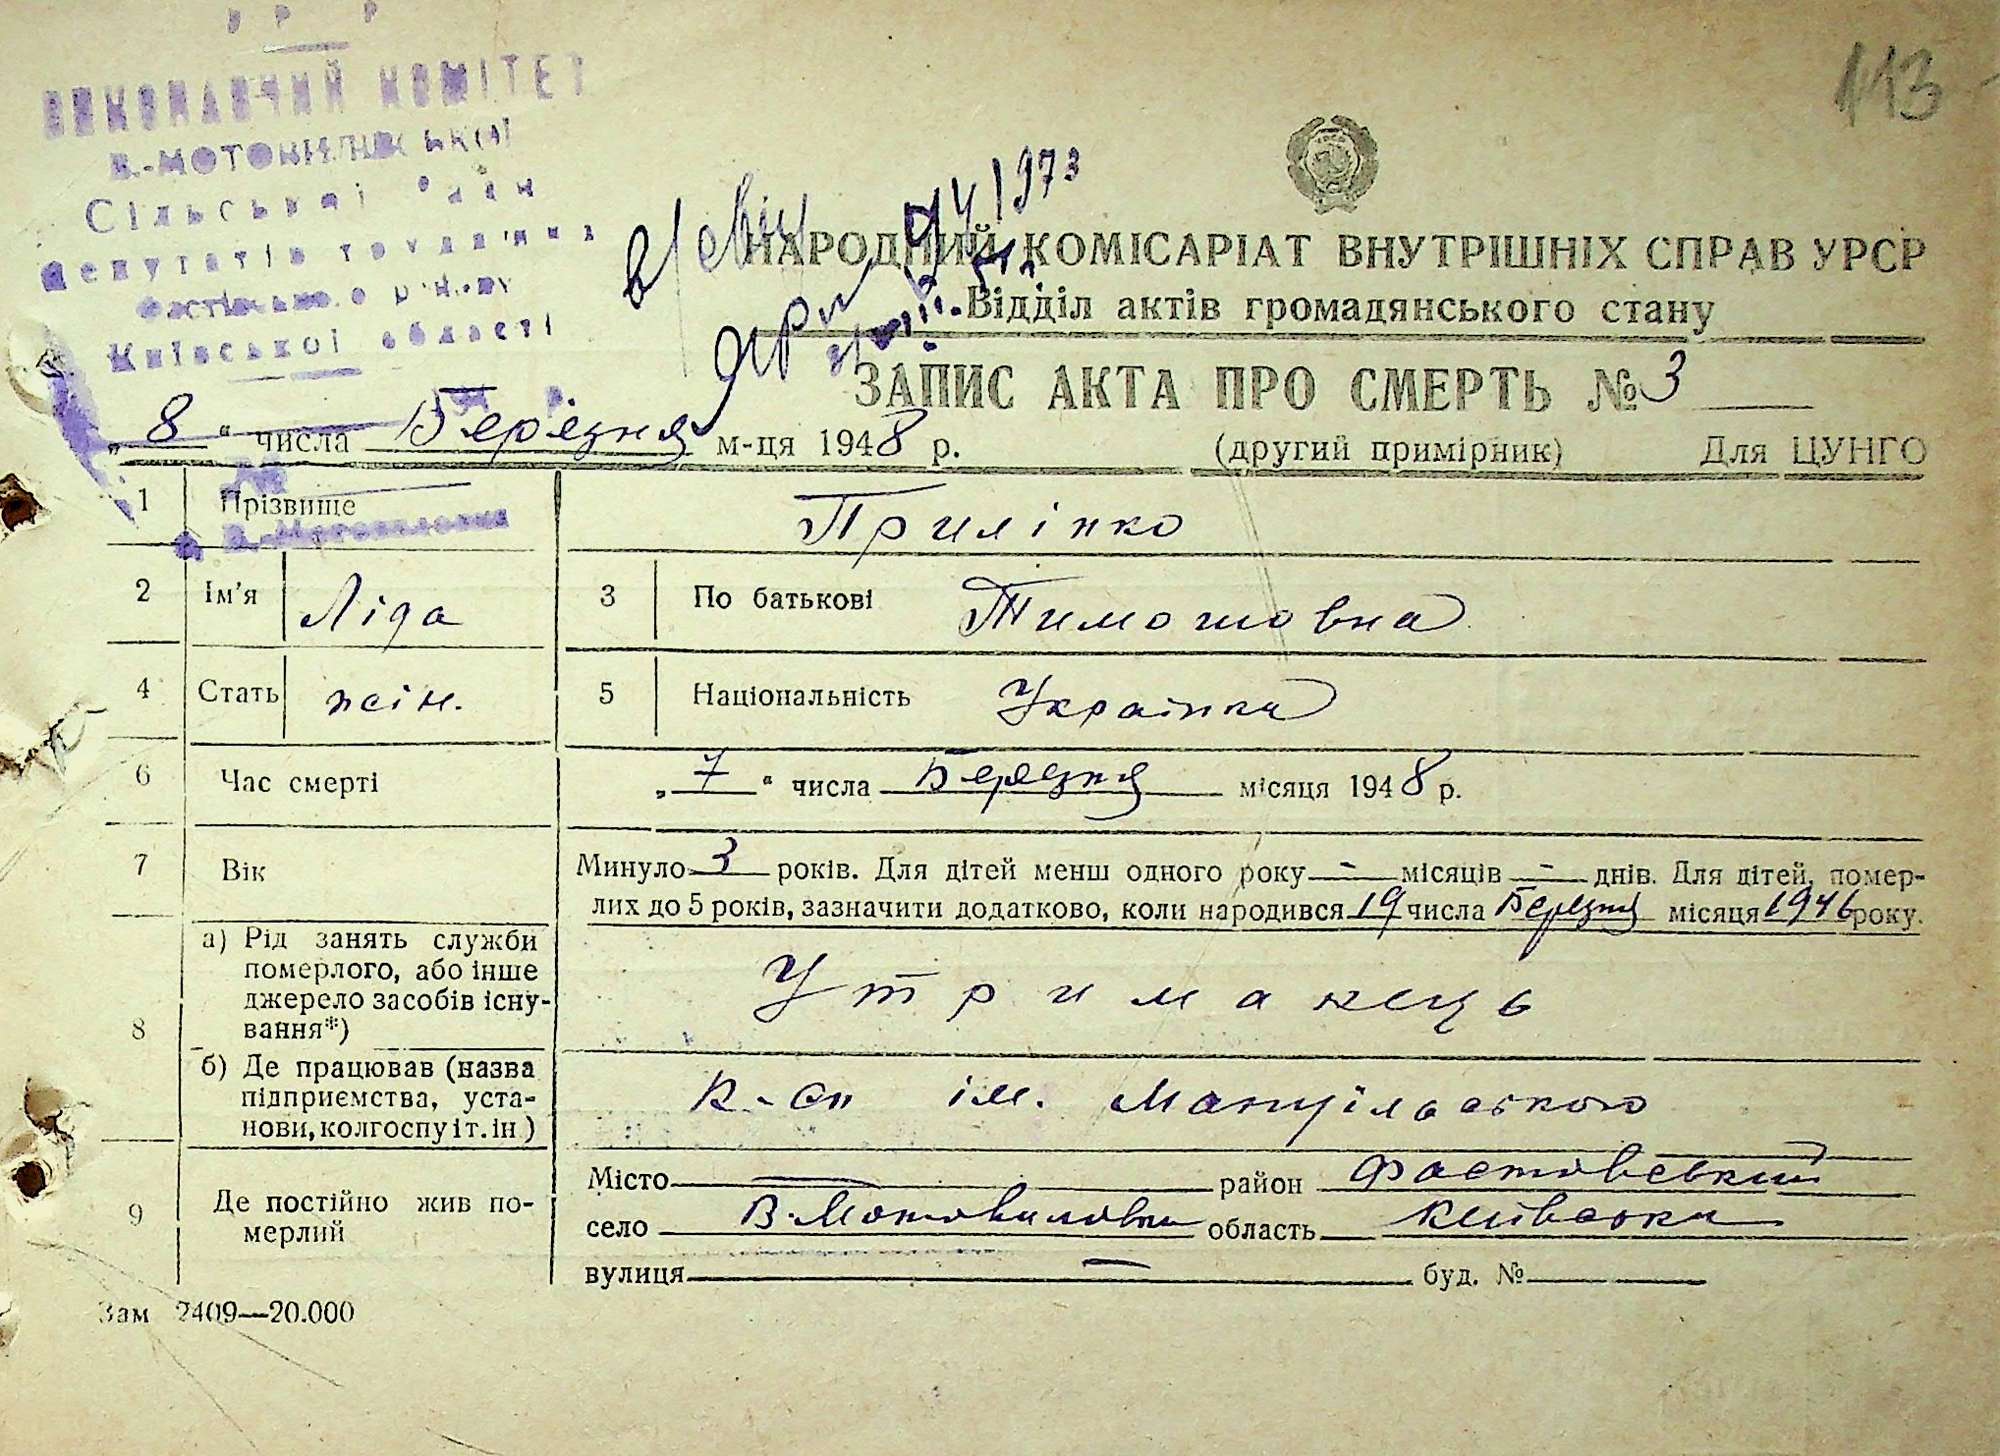 УРСР
ВИКОНАВЧИЙ КОМІТЕТ
В.-МОТОВИЛІВСЬКОЇ
Сільської Ради
Депутатів трудящих
Фастівського району
Київської області
В.-Мотовиловка
113
1973
НАРОДНИЙ КОМІСАРІАТ ВНУТРІШНІХ СПРАВ УРСР
Відділ актів громадянського стану
ЗАПИС АКТА ПРО СМЕРТЬ № 3
„ 8 “ числа Березня м-ця 1948 р. (другий примірник) Для ЦУНГО
1 Прізвище Приліпко
2 Ім'я Ліда 3 По батькові Тимошовна
4 Стать жін. 5 Національність Українка
6 Час смерті „ 7 “ числа Березня місяця 1948 р.
7 Вік Минуло 3 років. Для дітей менш одного року – місяців – днів. Для дітей, помер-
лих до 5 років, зазначити додатково, коли народився 19 числа Березня місяця 1946 року.
8 а) Рід занять служби
померлого, або інше
джерело засобів існу-
вання*) Утриманець
б) Де працював (назва
підприємства, уста-
нови, колгоспу і т. ін) К-сп ім. Мануільського
9 Де постійно жив по-
мерлий
Місто — район Фастовський
село В-Мотовиловка область Київська
вулиця — буд. №
Зам 2409—20.000